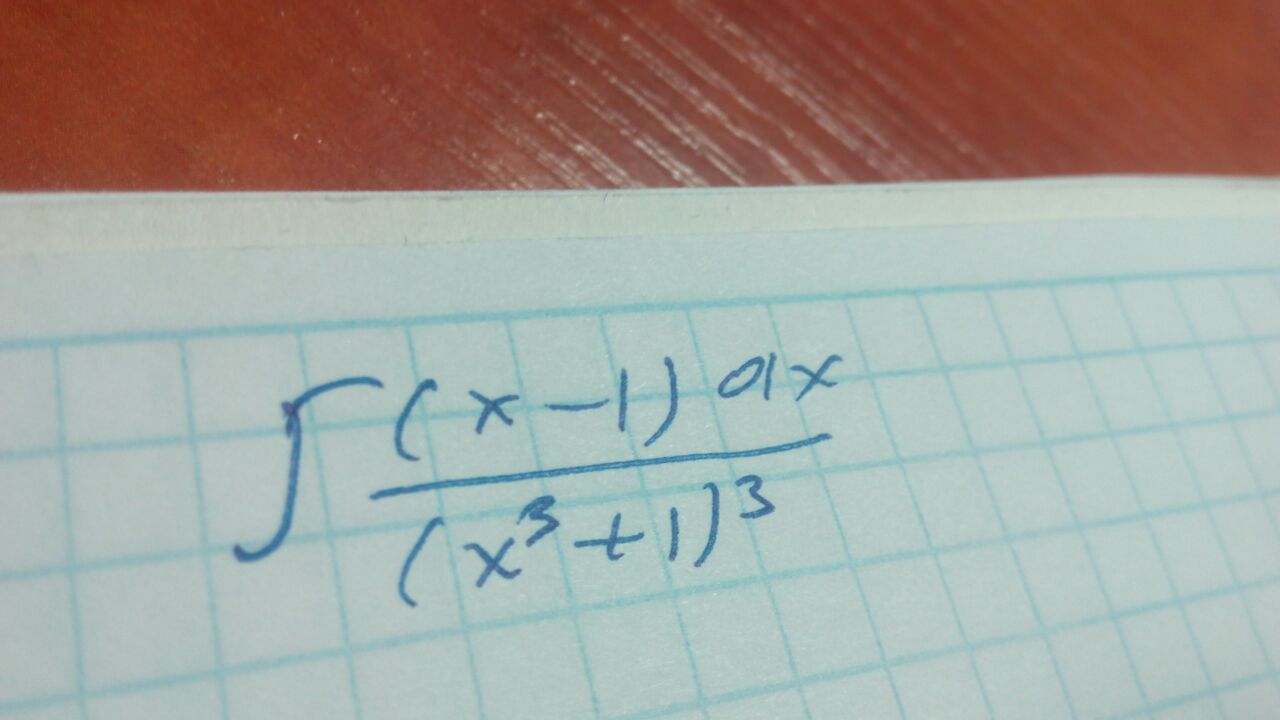 ∫ (x-1) dx
(x³+1)³